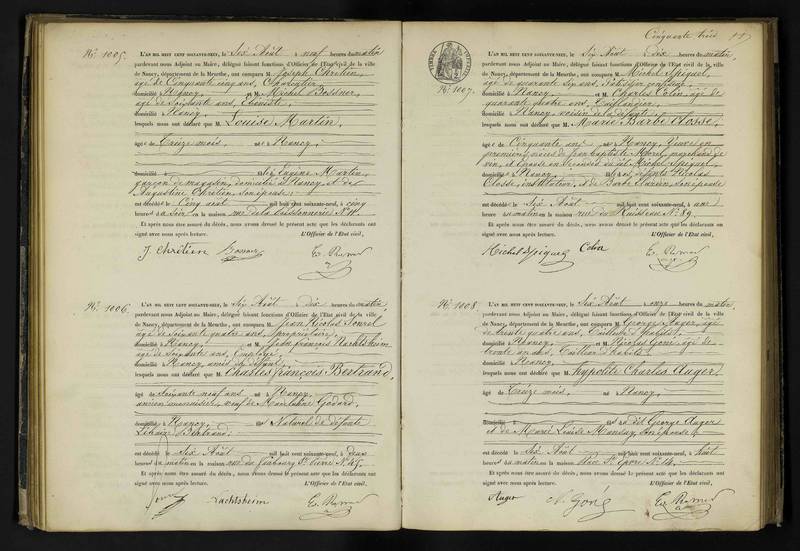 No. 1005.
L'AN MIL HUIT CENT SOIXANTE-NEUF, le Six Août à neuf heures du matin
pardevant nous Adjoint au Maire, délégué faisant fonctions d'Officier de l'Etat civil de la ville
de Nancy, département de la Meurthe, ont comparu M. Joseph Chrétien,
âgé de Cinquante cinq ans, Charpentier
domicilié à Nancy, et M. Michel Bossner,
âgé de Soixante ans, Ebéniste
domicilié à Nancy,
lesquels nous ont déclaré que M. Louise Martin,
âgée de Treize mois, née à Nancy,
domicilié à de Eugène Martin,
garçon de magasin, domicilié à Nancy, et de
Augustine Chrétien, son épouse,
est décédée le Cinq août mil huit cent soixante-neuf, à cinq
heures du Soir en la maison rue de la N° 11.
Et après nous être assuré du décès, nous avons dressé le présent acte que les déclarants ont
signé avec nous après lecture. L'Officier de l'Etat civil,
J. Chrétien
No. 1006.
L'AN MIL HUIT CENT SOIXANTE-NEUF, le Six Août à Dix heures du matin
pardevant nous Adjoint au Maire, délégué faisant fonctions d'Officier de l'Etat civil de la ville
de Nancy, département de la Meurthe, ont comparu M. Jean Nicolas
âgé de Soixante quatre ans, propriétaire,
domicilié à Nancy, et M. Jean François Nachtsheim
âgé de Soixante ans, Employé,
domicilié à Nancy, amis du défunt
lesquels nous ont déclaré que M. Charles François Bertrand,
âgé de Soixante neuf ans né à Nancy,
ancien menuisier, veuf de Madelaine Godard,
domicilié à Nancy, Naturel de défunte
Bertrand,
est décédé le Six Août mil huit cent soixante-neuf, à deux
heures du matin en la maison rue du faubourg St. Pierre N° 45.
Et après nous être assuré du décès, nous avons dressé le présent acte que les déclarants ont
signé avec nous après lecture. L'Officier de l'Etat civil,
Nachtsheim
Cinquante trois
No. 1007.
L'AN MIL HUIT CENT SOIXANTE-NEUF, le Six Août à Dix heures du matin,
pardevant nous Adjoint au Maire, délégué faisant fonctions d'Officier de l'Etat civil de la ville
de Nancy, département de la Meurthe, ont comparu M. Michel Spiquel,
âgé de quarante six ans, Pâtissier confiseur,
domicilié à Nancy, et M. Charles Colin âgé de
quarante quatre ans, Taillandier,
domicilié à Nancy, voisin de la défunte
lesquels nous ont déclaré que M. Marie Barbe Closse,
âgée de Cinquante ans née à Nancy, Veuve en
premières noces de Jean Baptiste Morel, marchand de
vin, et épouse en secondes du dit Michel Spiquel,
domiciliée à Nancy, des défunts Nicolas
Closse, instituteur, et de Barbe son épouse
est décédée le Six Août mil huit cent soixante-neuf, à une
heure du matin en la maison rue du Ruisseau N° 89.
Et après nous être assuré du décès, nous avons dressé le présent acte que les déclarants ont
signé avec nous après lecture. L'Officier de l'Etat civil,
Michel Spiquel Colin
No. 1008.
L'AN MIL HUIT CENT SOIXANTE-NEUF, le Six Août à onze heures du matin,
pardevant nous Adjoint au Maire, délégué faisant fonctions d'Officier de l'Etat civil de la ville
de Nancy, département de la Meurthe, ont comparu M. George Auger, âgé
de trente quatre ans, Tailleur d'habits,
domicilié à Nancy et M. Nicolas Goné âgé de
trente ans, Tailleur d'habits,
domicilié à Nancy,
lesquels nous ont déclaré que M. hypolite Charles Auger,
âgé de Treize mois, né à Nancy,
domicilié à du dit George Auger
et de Marie Louise son épouse
est décédé le Six Août mil huit cent soixante-neuf, à huit
heures du matin en la maison Place St. Epvre N° 14.
Et après nous être assuré du décès, nous avons dressé le présent acte que les déclarants ont
signé avec nous après lecture. L'Officier de l'Etat civil,
Auger N. Goné